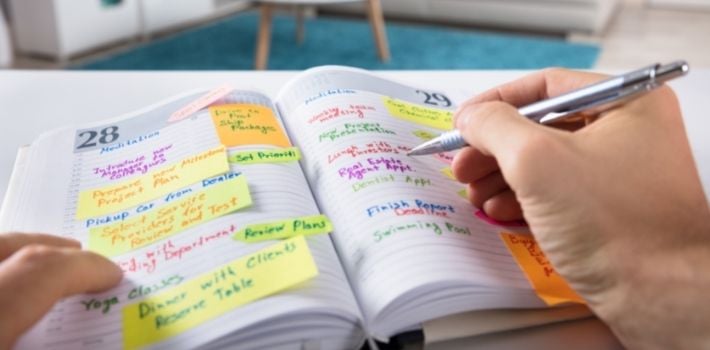 28
Meditation
Introduce new
Manager to
Colleagues
Prepare new Milestone
Project Plan
Pickup Car from Dealer
Select Service
Providers for
Review and Test
with
Department
Yoga Classes
Dinner with Clients
Reserve Table
Drive to Post
Ship
Packages
Set Prioriti
Review Plans
29
Meditation
Weekly team
meeting
New Project
Presentation
Lunch with
Investors
Real Estate
Agent Appt.
Dentist Appt.
Finish Report
Deadline
Swimming Pool